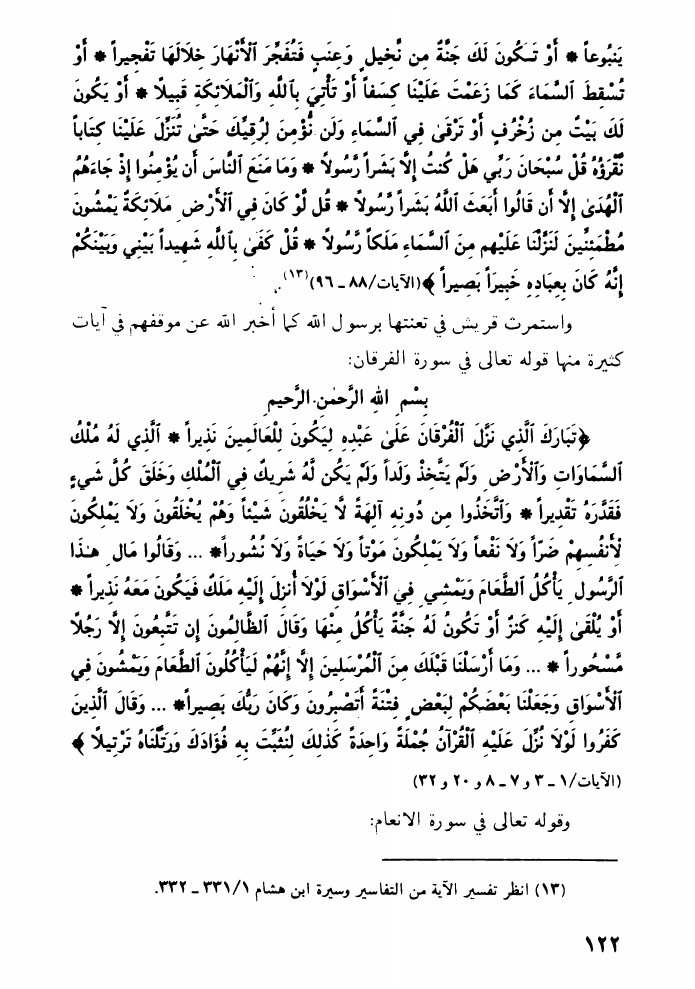 يَنبُوعاً * أَوْ تَكُونَ لَكَ جَنَّةٌ مِن نَّخِيلٍ وَعِنَبٍ فَتُفَجِّرَ ٱلْأَنْهَارَ خِلَالَهَا تَفْجِيراً * أَوْ
تُسْقِطَ ٱلسَّمَاءَ كَمَا زَعَمْتَ عَلَيْنَا كِسَفاً أَوْ تَأْتِيَ بِٱللَّهِ وَٱلْمَلَائِكَةِ قَبِيلًا * أَوْ يَكُونَ
لَكَ بَيْتٌ مِن زُخْرُفٍ أَوْ تَرْقَىٰ فِي ٱلسَّمَاءِ وَلَن نُّؤْمِنَ لِرُقِيِّكَ حَتَّىٰ تُنَزِّلَ عَلَيْنَا كِتَاباً
نَّقْرَؤُهُ قُلْ سُبْحَانَ رَبِّي هَلْ كُنتُ إِلَّا بَشَراً رَّسُولًا * وَمَا مَنَعَ ٱلنَّاسَ أَن يُؤْمِنُوا إِذْ جَاءَهُمُ
ٱلْهُدَىٰ إِلَّا أَن قَالُوا أَبَعَثَ ٱللَّهُ بَشَراً رَّسُولًا * قُل لَّوْ كَانَ فِي ٱلْأَرْضِ مَلَائِكَةٌ يَمْشُونَ
مُطْمَئِنِّينَ لَنَزَّلْنَا عَلَيْهِم مِنَ ٱلسَّمَاءِ مَلَكاً رَّسُولًا * قُلْ كَفَىٰ بِٱللَّهِ شَهِيداً بَيْنِي وَبَيْنَكُمْ
إِنَّهُ كَانَ بِعِبَادِهِ خَبِيرَاً بَصِيراً ﴾ (الآيات/٨٨ ـ ٩٦)(١٣).
واستمرت قريش في تعنتها برسول الله كما أخبر الله عن موقفهم في آيات
كثيرة منها قوله تعالى في سورة الفرقان:
بِسْمِ اللهِ الرَّحْمٰنِ الرَّحِيمِ
﴿تَبَارَكَ ٱلَّذِي نَزَّلَ ٱلْفُرْقَانَ عَلَىٰ عَبْدِهِ لِيَكُونَ لِلْعَالَمِينَ نَذِيراً * ٱلَّذِي لَهُ مُلْكُ
ٱلسَّمَاوَاتِ وَٱلْأَرْضِ وَلَمْ يَتَّخِذْ وَلَداً وَلَمْ يَكُن لَّهُ شَرِيكٌ فِي ٱلْمُلْكِ وَخَلَقَ كُلَّ شَيْءٍ
فَقَدَّرَهُ تَقْدِيراً * وَٱتَّخَذُوا مِن دُونِهِ آلِهَةً لَّا يَخْلُقُونَ شَيْئاً وَهُمْ يُخْلَقُونَ وَلَا يَمْلِكُونَ
لِأَنفُسِهِمْ ضَرّاً وَلَا نَفْعاً وَلَا يَمْلِكُونَ مَوْتاً وَلَا حَيَاةً وَلَا نُشُوراً* ... وَقَالُوا مَالِ هٰذَا
ٱلرَّسُولِ يَأْكُلُ ٱلطَّعَامَ وَيَمْشِي فِي ٱلْأَسْوَاقِ لَوْلَا أُنزِلَ إِلَيْهِ مَلَكٌ فَيَكُونَ مَعَهُ نَذِيراً *
أَوْ يُلْقَىٰ إِلَيْهِ كَنزٌ أَوْ تَكُونُ لَهُ جَنَّةٌ يَأْكُلُ مِنْهَا وَقَالَ ٱلظَّالِمُونَ إِن تَتَّبِعُونَ إِلَّا رَجُلًا
مَّسْحُوراً * ... وَمَا أَرْسَلْنَا قَبْلَكَ مِنَ ٱلْمُرْسَلِينَ إِلَّا إِنَّهُمْ لَيَأْكُلُونَ ٱلطَّعَامَ وَيَمْشُونَ فِي
ٱلْأَسْوَاقِ وَجَعَلْنَا بَعْضَكُمْ لِبَعْضٍ فِتْنَةً أَتَصْبِرُونَ وَكَانَ رَبُّكَ بَصِيراً* ... وَقَالَ ٱلَّذِينَ
كَفَرُوا لَوْلَا نُزِّلَ عَلَيْهِ ٱلْقُرْآنُ جُمْلَةً وَاحِدَةً كَذٰلِكَ لِنُثَبِّتَ بِهِ فُؤَادَكَ وَرَتَّلْنَاهُ تَرْتِيلًا ﴾
(الآيات/١ ـ ٣ و ٧ ـ ٨ و ٢٠ و ٣٢)
وقوله تعالى في سورة الانعام:
(١٣) انظر تفسير الآية من التفاسير وسيرة ابن هشام ٣٣١/١ ـ ٣٣٢.
١٢٢